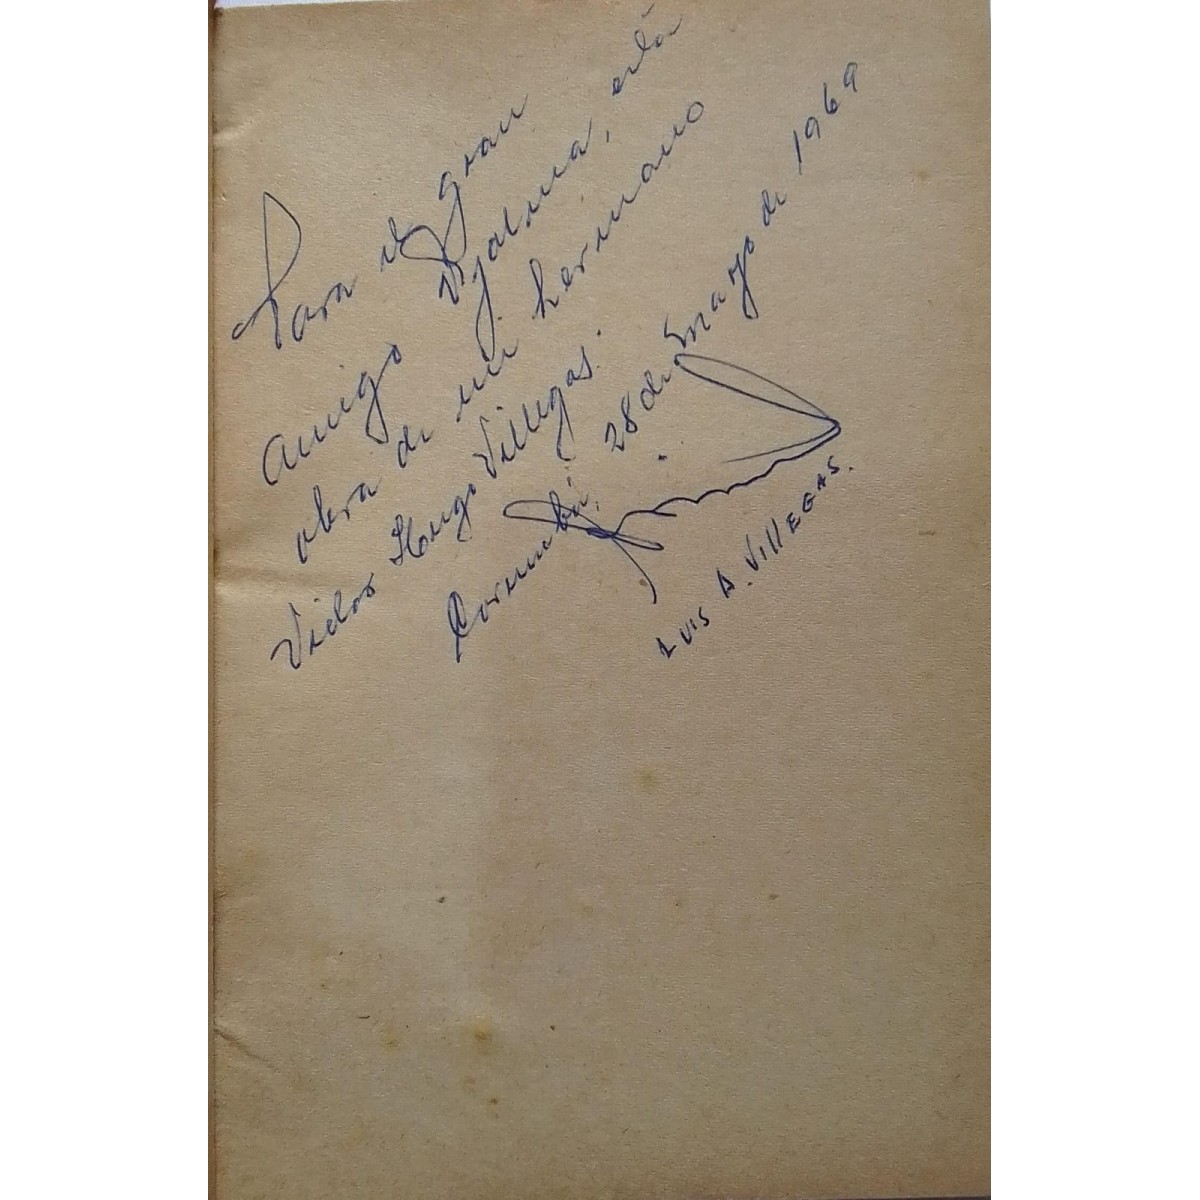 Para el gran
amigo Djalma, esta
obra de mi hermano
Victor Hugo Villegas.
Corumbá, 28 de Mayo de 1969
LUIS A. VILLEGAS.